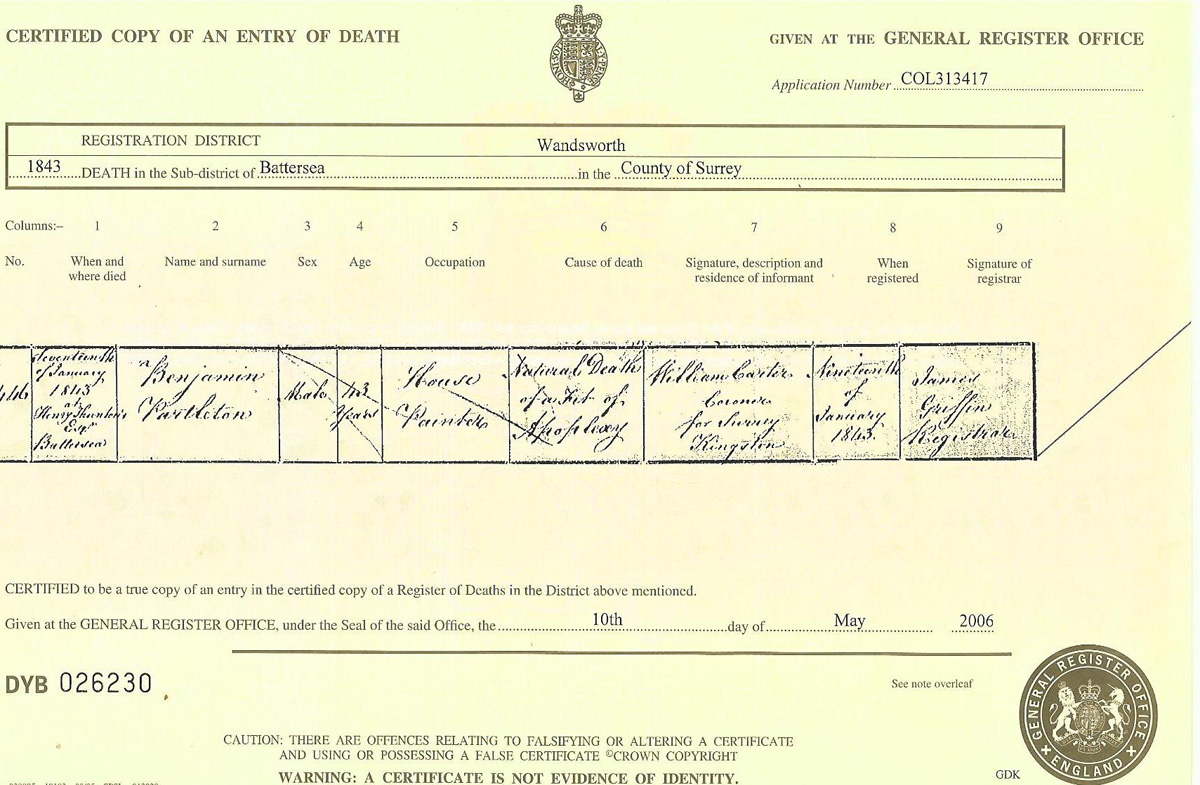 CERTIFIED COPY OF AN ENTRY OF DEATH
GIVEN AT THE GENERAL REGISTER OFFICE
Application Number COL313417
REGISTRATION DISTRICT Wandsworth
1843 DEATH in the Sub-district of Battersea in the County of Surrey
Columns:– 1 2 3 4 5 6 7 8 9
No. When and where died Name and surname Sex Age Occupation Cause of death Signature, description and residence of informant When registered Signature of registrar
of January
1843
at
Esqr
Battersea
Benjamin
Partleton
Male
43
Years
House
Painter
Natural Death
of a Fit of
Apoplexy
William Carter
Coroner
for Surrey
Kingston
Nineteenth
of
January
1843
James
Griffin
Registrar
CERTIFIED to be a true copy of an entry in the certified copy of a Register of Deaths in the District above mentioned.
Given at the GENERAL REGISTER OFFICE, under the Seal of the said Office, the 10th day of May 2006
DYB 026230
See note overleaf
CAUTION: THERE ARE OFFENCES RELATING TO FALSIFYING OR ALTERING A CERTIFICATE
AND USING OR POSSESSING A FALSE CERTIFICATE ©CROWN COPYRIGHT
WARNING: A CERTIFICATE IS NOT EVIDENCE OF IDENTITY.
GDK
GENERAL REGISTER OFFICE
ENGLAND